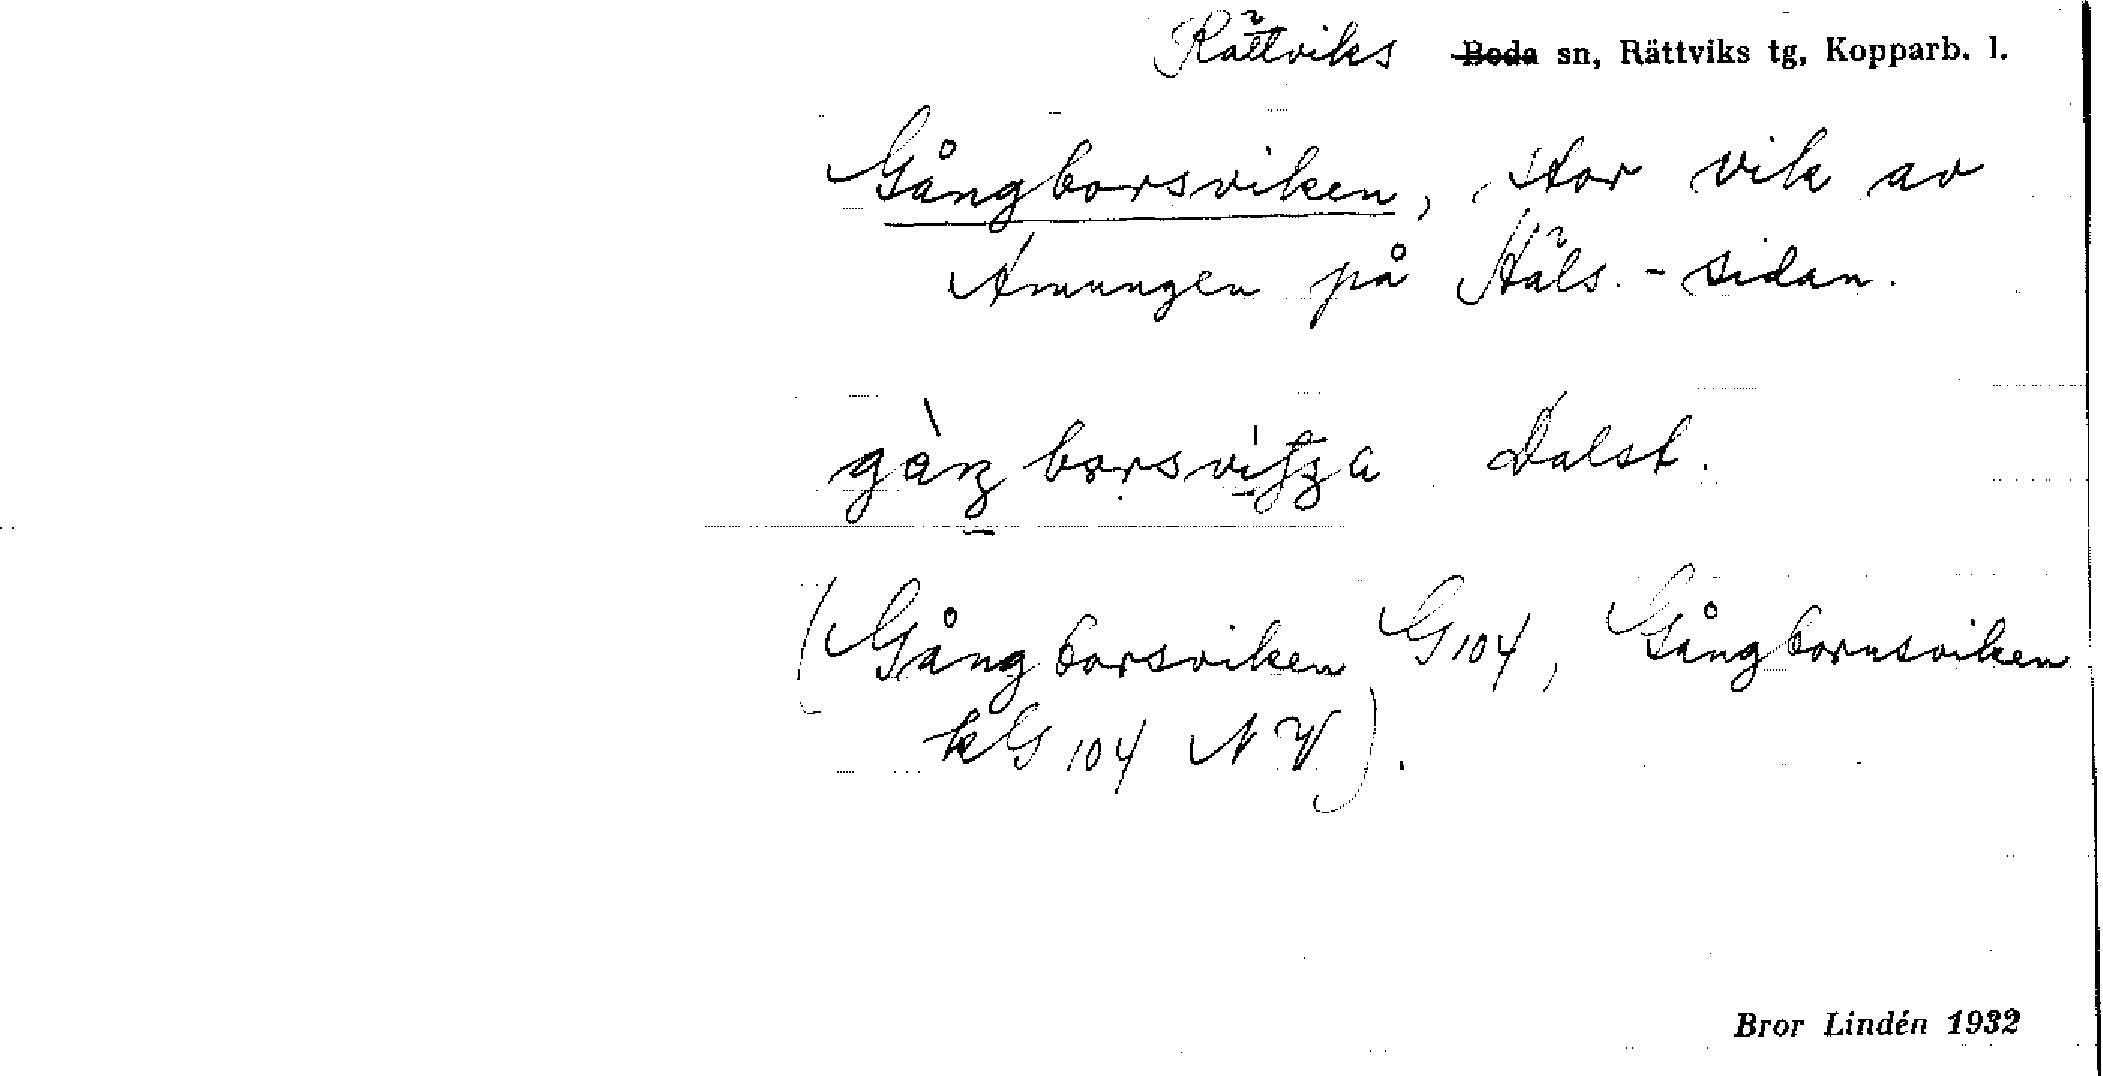 Rättviks Boda sn, Rättviks tg, Kopparb. l.
Gångborsviken, stor vik av
Amungen på Häls.-sidan.
Dalst.
(Gångborsviken G104, Gångbornsviken
kG 104 NV).
Bror Lindén 1932